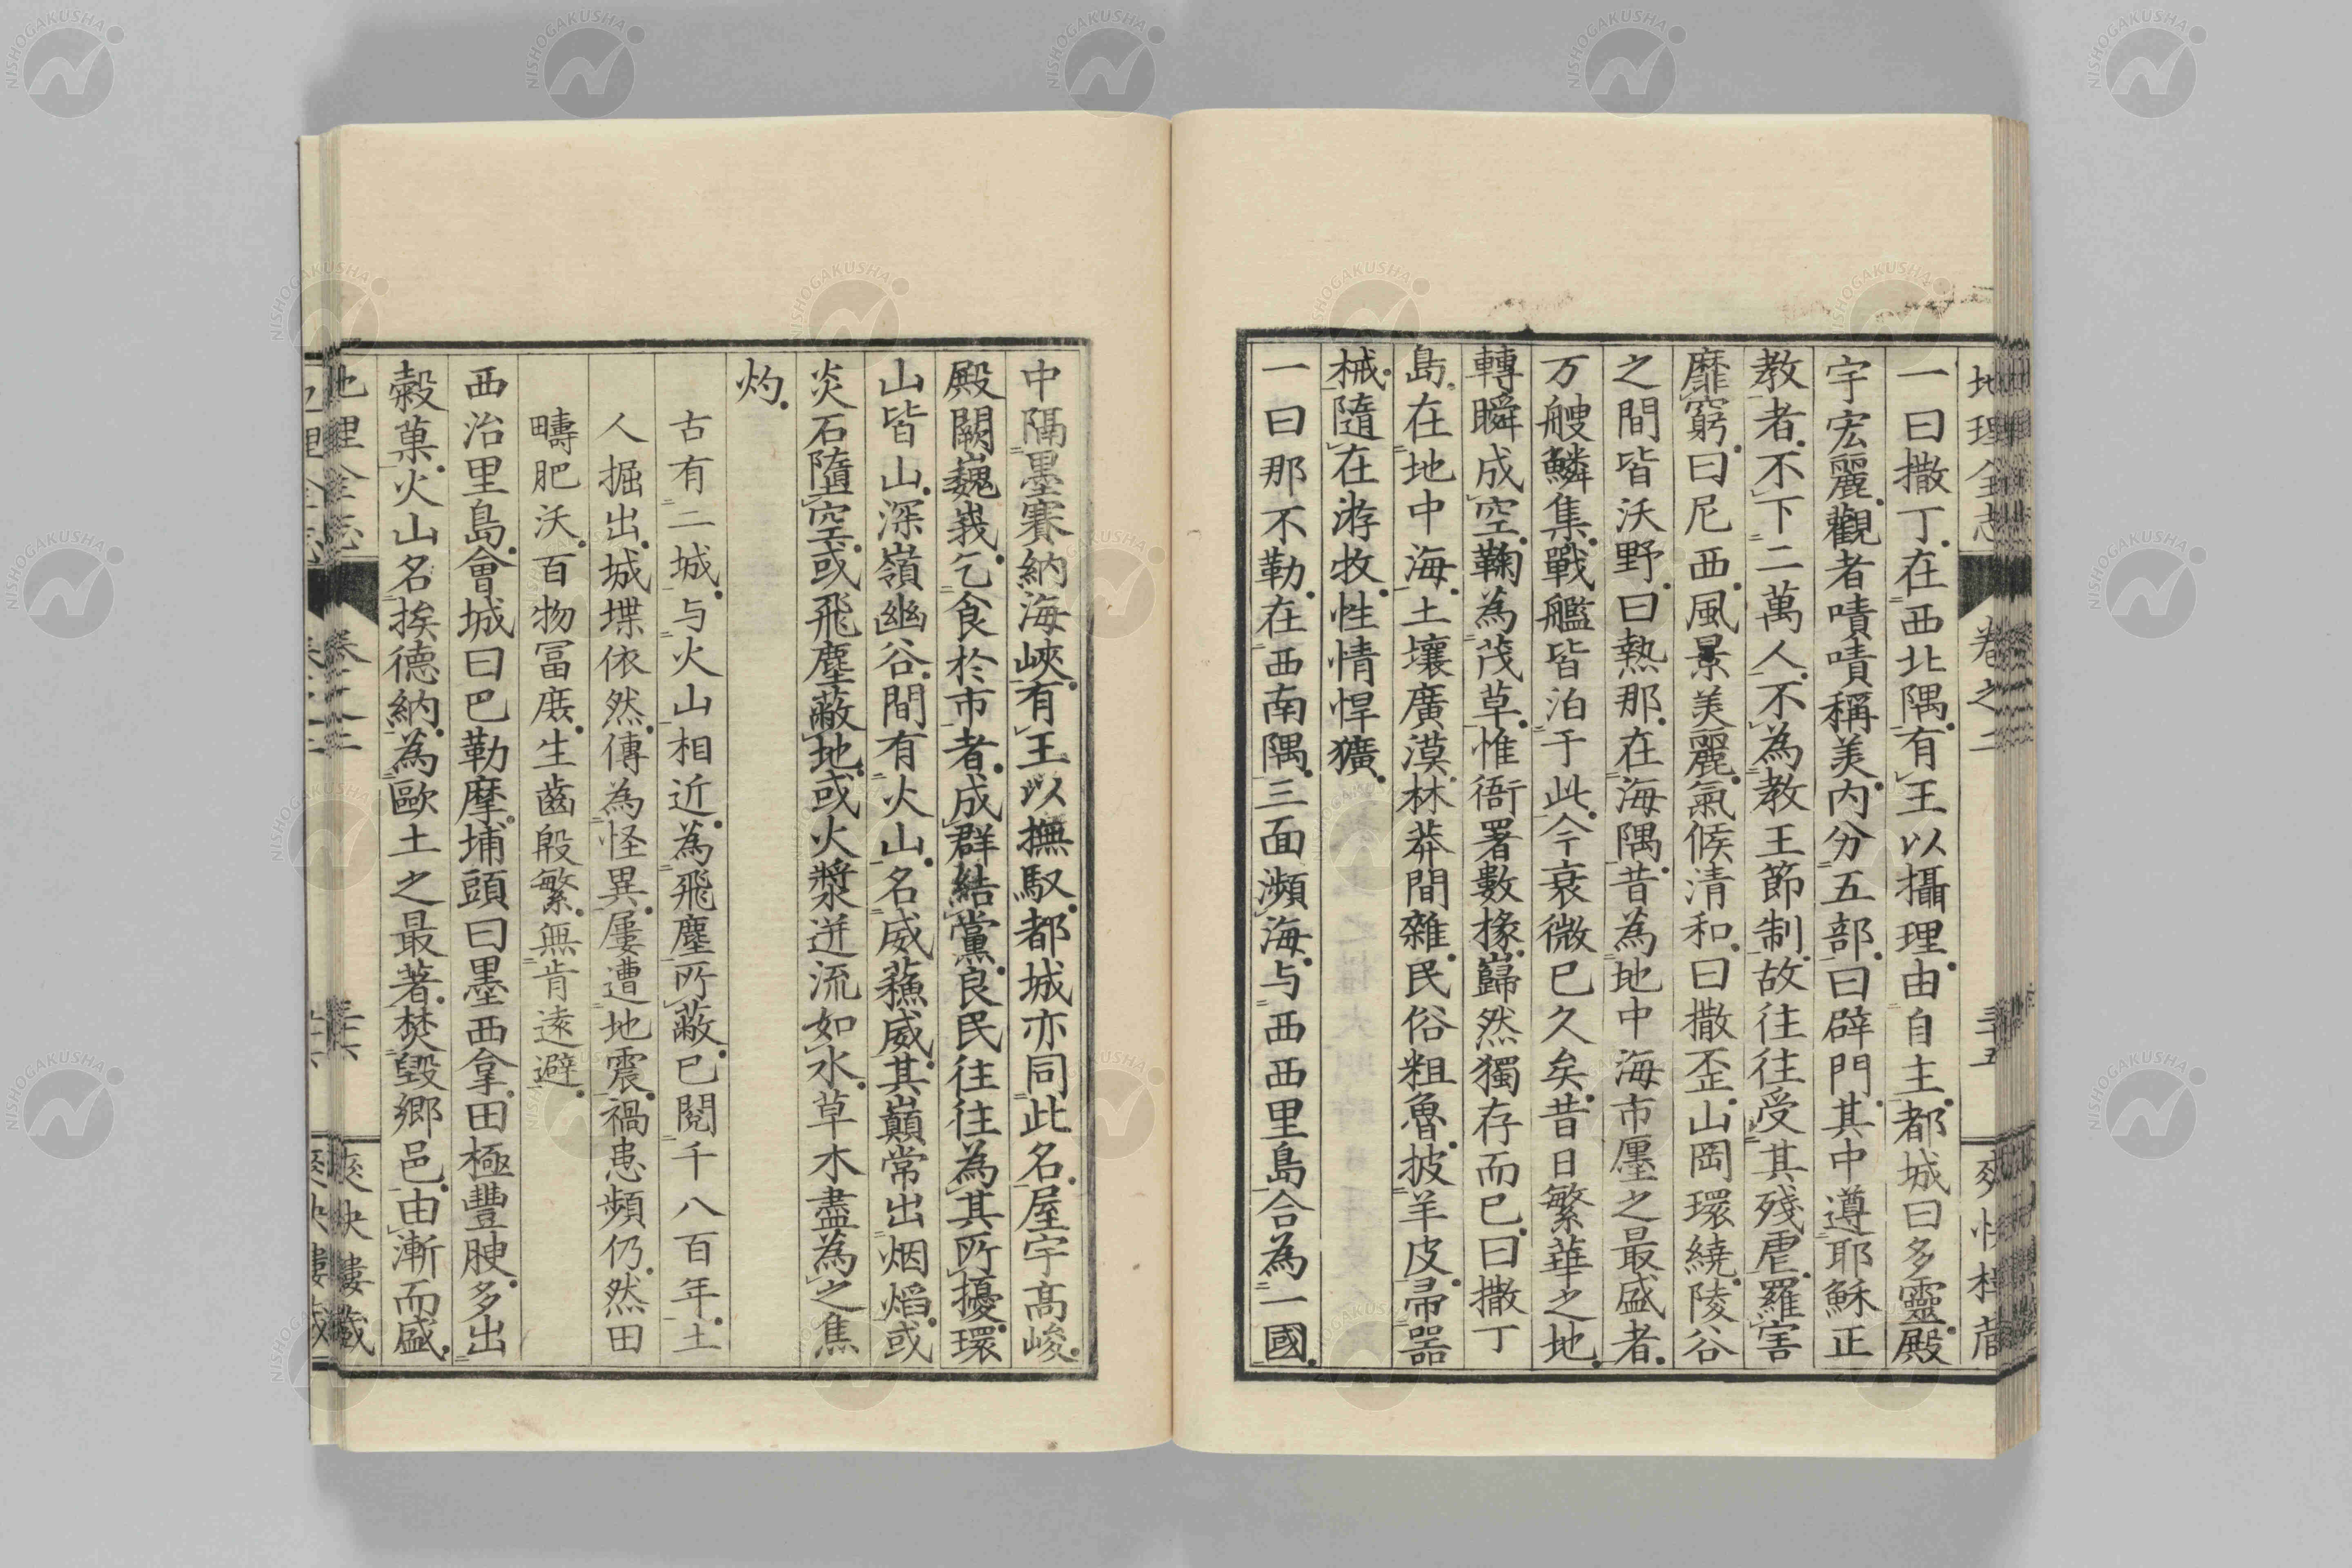 地理全志 卷之二 三十五 爽快樓藏
一曰撒丁。在西北隅。有王以攝理。由自主。都城曰多靈。殿
宇宏麗。觀者嘖嘖稱美。内分五部。曰辟門。其中遵耶穌正
教者。不下二萬人。不為教王節制。故往往受其殘虐。羅害
靡窮。曰尼西。風景美麗。氣候清和。曰撒歪。山岡環繞。陵谷
之間皆沃野。曰熱那。在海隅。昔為地中海市廛之最盛者。
万艘鱗集。戰艦皆泊于此。今衰微已久矣。昔日繁華之地。
轉瞬成空。鞠為茂草。惟衙署數椽。巋然獨存而已。曰撒丁
島。在地中海。土壤廣漠。林莽間雜。民俗粗魯。披羊皮。帚器
械。隨在游牧。性情悍獷。
一曰那不勒。在西南隅。三面瀕海。与西西里島合為一國。
中隔墨賽納海峽。有王以撫馭。都城亦同此名。屋宇高峻。
殿闕巍峩。乞食於市者。成群結黨。良民往往為其所擾。環
山皆山。深嶺幽谷。間有火山。名威蘓威。其巔常出烟焰。或
炎石墮空。或飛塵蔽地。或火漿迸流如水。草木盡為之焦
灼。
古有二城。与火山相近。為飛塵所蔽。已閱千八百年。土
人掘出。城堞依然。傳為怪異。屢遭地震。禍患頻仍。然田
疇肥沃。百物冨庶。生齒殷繁。無肯遠避。
西治里島。會城曰巴勒摩。埔頭曰墨西拿。田極豐腴。多出
穀菓。火山名挨德納。為歐土之最著。焚毀鄉邑。由漸而盛。
地理全志 卷之二 三十六 爽快樓藏